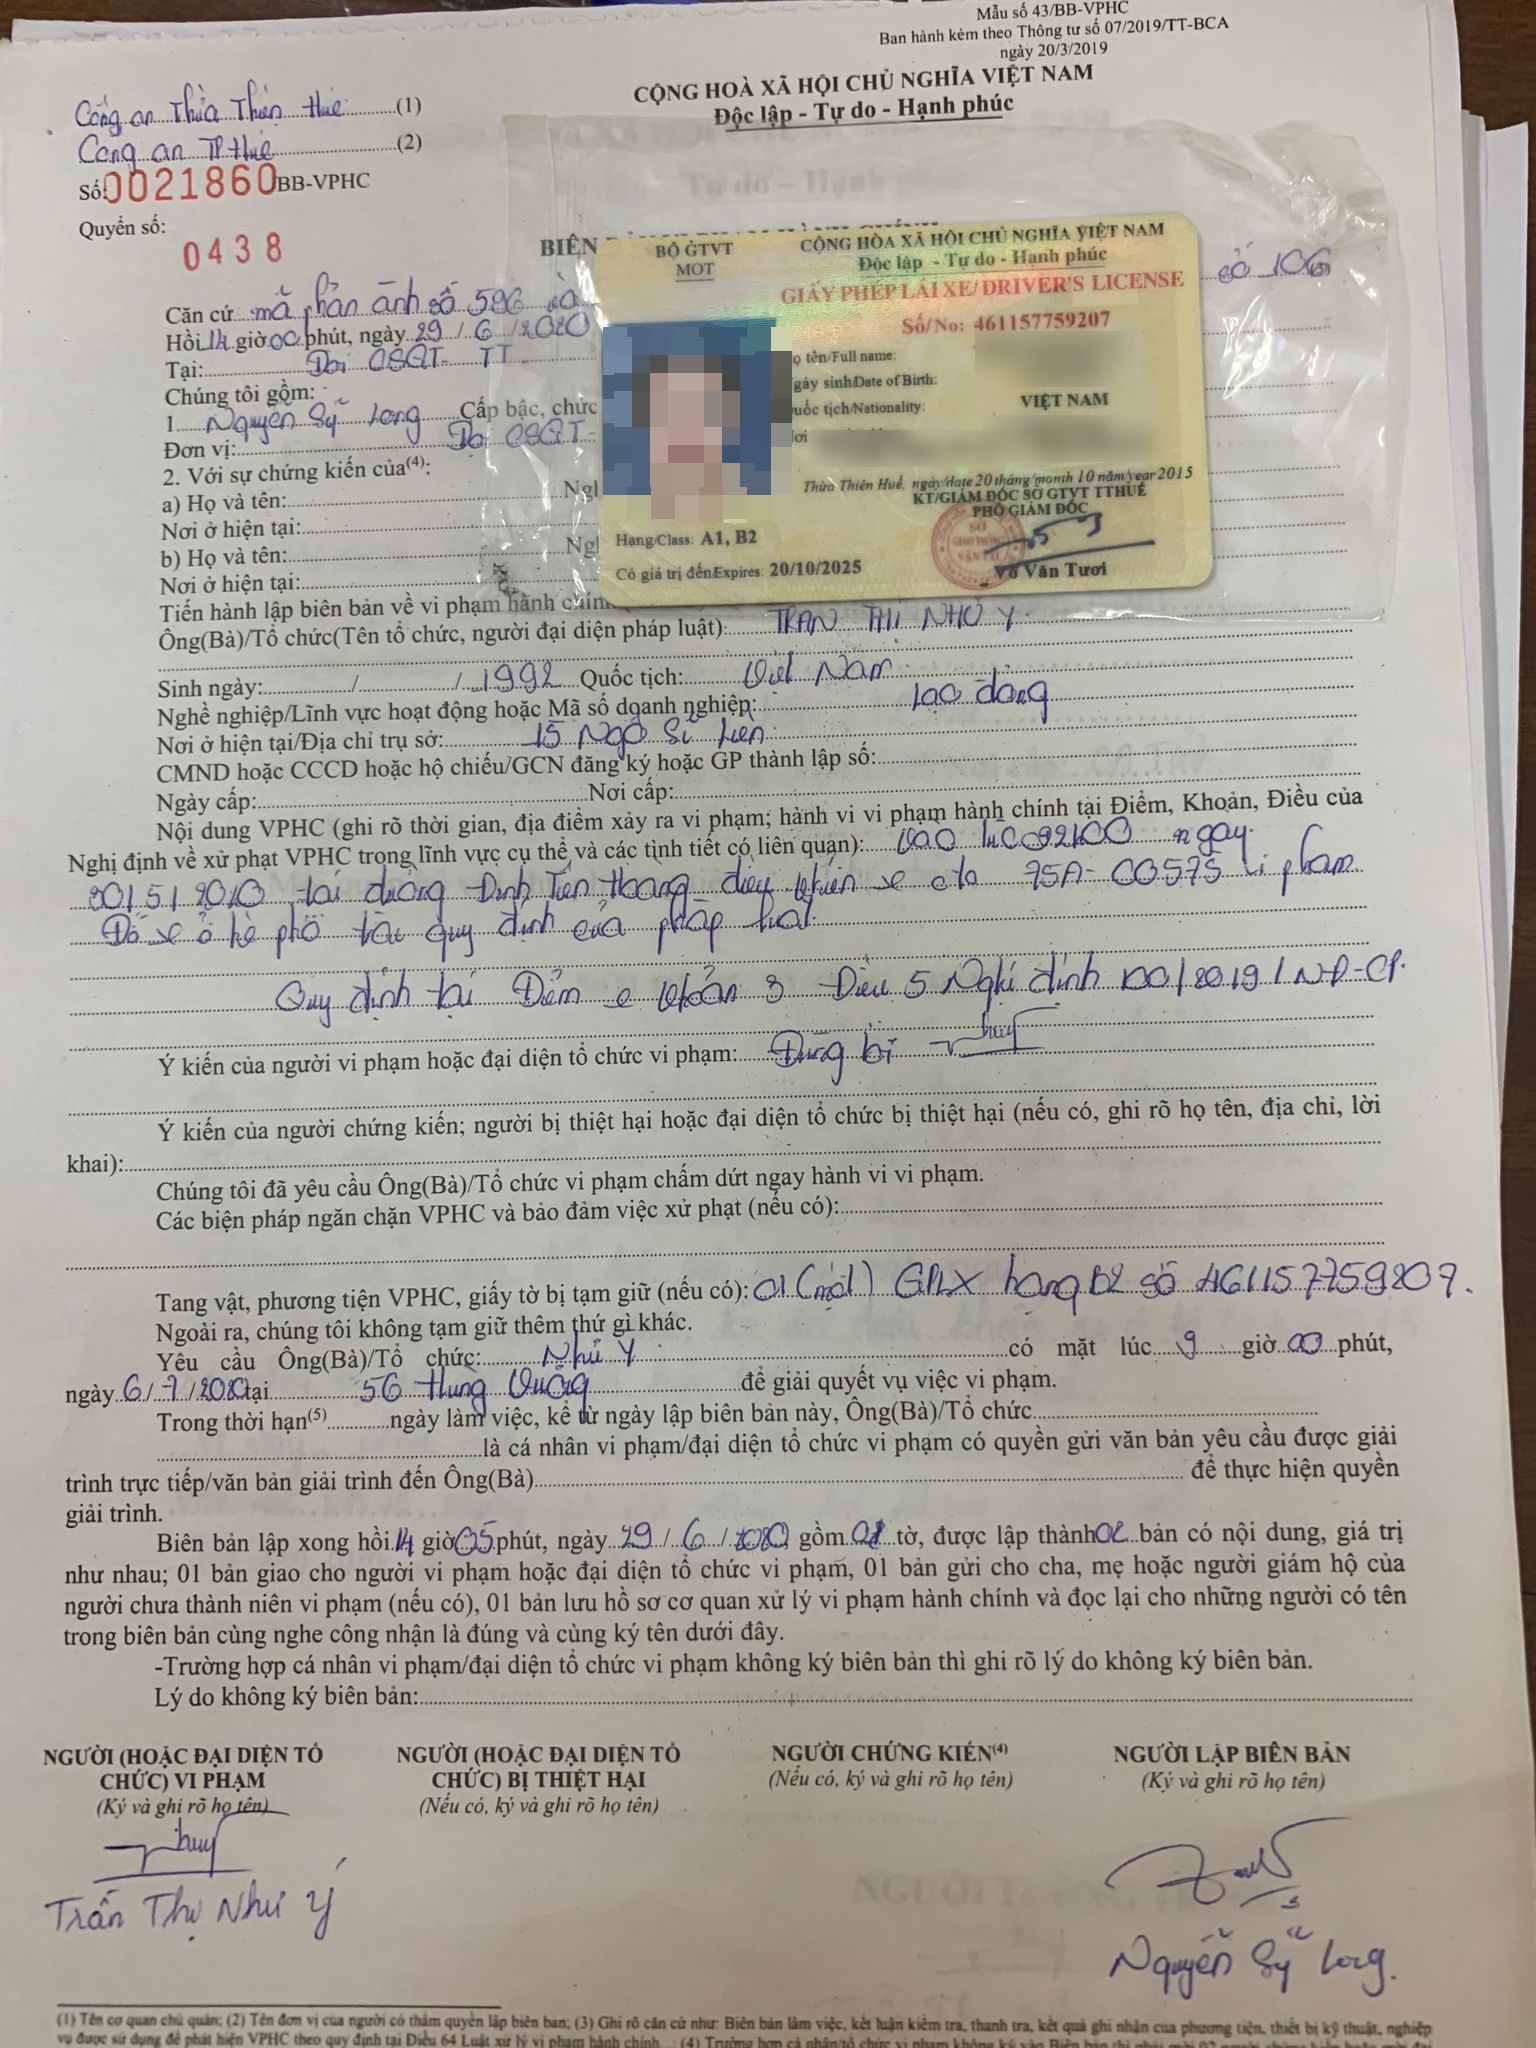 Mẫu số 43/BB-VPHC
Ban hành kèm theo Thông tư số 07/2019/TT-BCA
ngày 20/3/2019
CỘNG HOÀ XÃ HỘI CHỦ NGHĨA VIỆT NAM
Độc lập - Tự do - Hạnh phúc
Công an Thừa Thiên Huế (1)
Công an TP Huế (2)
Số: 0021860 BB-VPHC
Quyển số: 0438
BIÊN
BỘ GTVT
MOT
CỘNG HÒA XÃ HỘI CHỦ NGHĨA VIỆT NAM
Độc lập - Tự do - Hạnh phúc
GIẤY PHÉP LÁI XE/DRIVER'S LICENSE
Số/No: 461157759207
Họ tên/Full name:
Ngày sinh/Date of Birth:
Quốc tịch/Nationality: VIỆT NAM
Nơi
Thừa Thiên Huế, ngày/date 20 tháng/month 10 năm/year 2015
KT/GIÁM ĐỐC SỞ GTVT TTHUẾ
PHÓ GIÁM ĐỐC
SỞ GIAO THÔNG VẬN TẢI
Võ Văn Tươi
Hạng/Class: A1, B2
Có giá trị đến/Expires: 20/10/2025
Căn cứ mã phản ánh số 596 số 106
Hồi 14 giờ 00 phút, ngày 29/6/2020
Tại: Đội CSGT- TT
Chúng tôi gồm:
1. Nguyễn Sỹ Long Cấp bậc, chức
Đơn vị: Đội CSGT-
2. Với sự chứng kiến của(4):
a) Họ và tên: Ngh
Nơi ở hiện tại:
b) Họ và tên: Ngh
Nơi ở hiện tại:
Tiến hành lập biên bản về vi phạm hành chính
Ông(Bà)/Tổ chức(Tên tổ chức, người đại diện pháp luật): TRẦN THỊ NHƯ Ý
Sinh ngày: / / 1992 Quốc tịch: Việt Nam
Nghề nghiệp/Lĩnh vực hoạt động hoặc Mã số doanh nghiệp: lao động
Nơi ở hiện tại/Địa chỉ trụ sở: 15 Ngô Sĩ Liên
CMND hoặc CCCD hoặc hộ chiếu/GCN đăng ký hoặc GP thành lập số:
Ngày cấp: Nơi cấp:
Nội dung VPHC (ghi rõ thời gian, địa điểm xảy ra vi phạm; hành vi vi phạm hành chính tại Điểm, Khoản, Điều của
Nghị định về xử phạt VPHC trong lĩnh vực cụ thể và các tình tiết có liên quan): Vào lúc ngày
30/5/2020 tại đường Đinh Tiên Hoàng điều khiển xe ô tô 75A-00575 vi phạm
Đỗ xe ở hè phố trái quy định của pháp luật
Quy định tại Điểm e Khoản 3 Điều 5 Nghị định 100/2019/NĐ-CP.
Ý kiến của người vi phạm hoặc đại diện tổ chức vi phạm: Đúng
Ý kiến của người chứng kiến; người bị thiệt hại hoặc đại diện tổ chức bị thiệt hại (nếu có, ghi rõ họ tên, địa chỉ, lời
khai):
Chúng tôi đã yêu cầu Ông(Bà)/Tổ chức vi phạm chấm dứt ngay hành vi vi phạm.
Các biện pháp ngăn chặn VPHC và bảo đảm việc xử phạt (nếu có):
Tang vật, phương tiện VPHC, giấy tờ bị tạm giữ (nếu có): 01 (một) GPLX hạng B2 số 461157759207.
Ngoài ra, chúng tôi không tạm giữ thêm thứ gì khác.
Yêu cầu Ông(Bà)/Tổ chức: Như Ý có mặt lúc 9 giờ 00 phút,
ngày 6/7/2020 tại 56 Hùng Vương để giải quyết vụ việc vi phạm.
Trong thời hạn(5) ngày làm việc, kể từ ngày lập biên bản này, Ông(Bà)/Tổ chức
là cá nhân vi phạm/đại diện tổ chức vi phạm có quyền gửi văn bản yêu cầu được giải
trình trực tiếp/văn bản giải trình đến Ông(Bà) để thực hiện quyền
giải trình.
Biên bản lập xong hồi 14 giờ 05 phút, ngày 29/6/2020 gồm 01 tờ, được lập thành 02 bản có nội dung, giá trị
như nhau; 01 bản giao cho người vi phạm hoặc đại diện tổ chức vi phạm, 01 bản gửi cho cha, mẹ hoặc người giám hộ của
người chưa thành niên vi phạm (nếu có), 01 bản lưu hồ sơ cơ quan xử lý vi phạm hành chính và đọc lại cho những người có tên
trong biên bản cùng nghe công nhận là đúng và cùng ký tên dưới đây.
-Trường hợp cá nhân vi phạm/đại diện tổ chức vi phạm không ký biên bản thì ghi rõ lý do không ký biên bản.
Lý do không ký biên bản:
NGƯỜI (HOẶC ĐẠI DIỆN TỔ CHỨC) VI PHẠM
(Ký và ghi rõ họ tên)
Trần Thị Như Ý
NGƯỜI (HOẶC ĐẠI DIỆN TỔ CHỨC) BỊ THIỆT HẠI
(Nếu có, ký và ghi rõ họ tên)
NGƯỜI CHỨNG KIẾN(4)
(Nếu có, ký và ghi rõ họ tên)
NGƯỜI LẬP BIÊN BẢN
(Ký và ghi rõ họ tên)
Nguyễn Sỹ Long
(1) Tên cơ quan chủ quản; (2) Tên đơn vị của người có thẩm quyền lập biên bản; (3) Ghi rõ căn cứ như: Biên bản làm việc, kết luận kiểm tra, thanh tra, kết quả ghi nhận của phương tiện, thiết bị kỹ thuật, nghiệp
vụ được sử dụng để phát hiện VPHC theo quy định tại Điều 64 Luật xử lý vi phạm hành chính